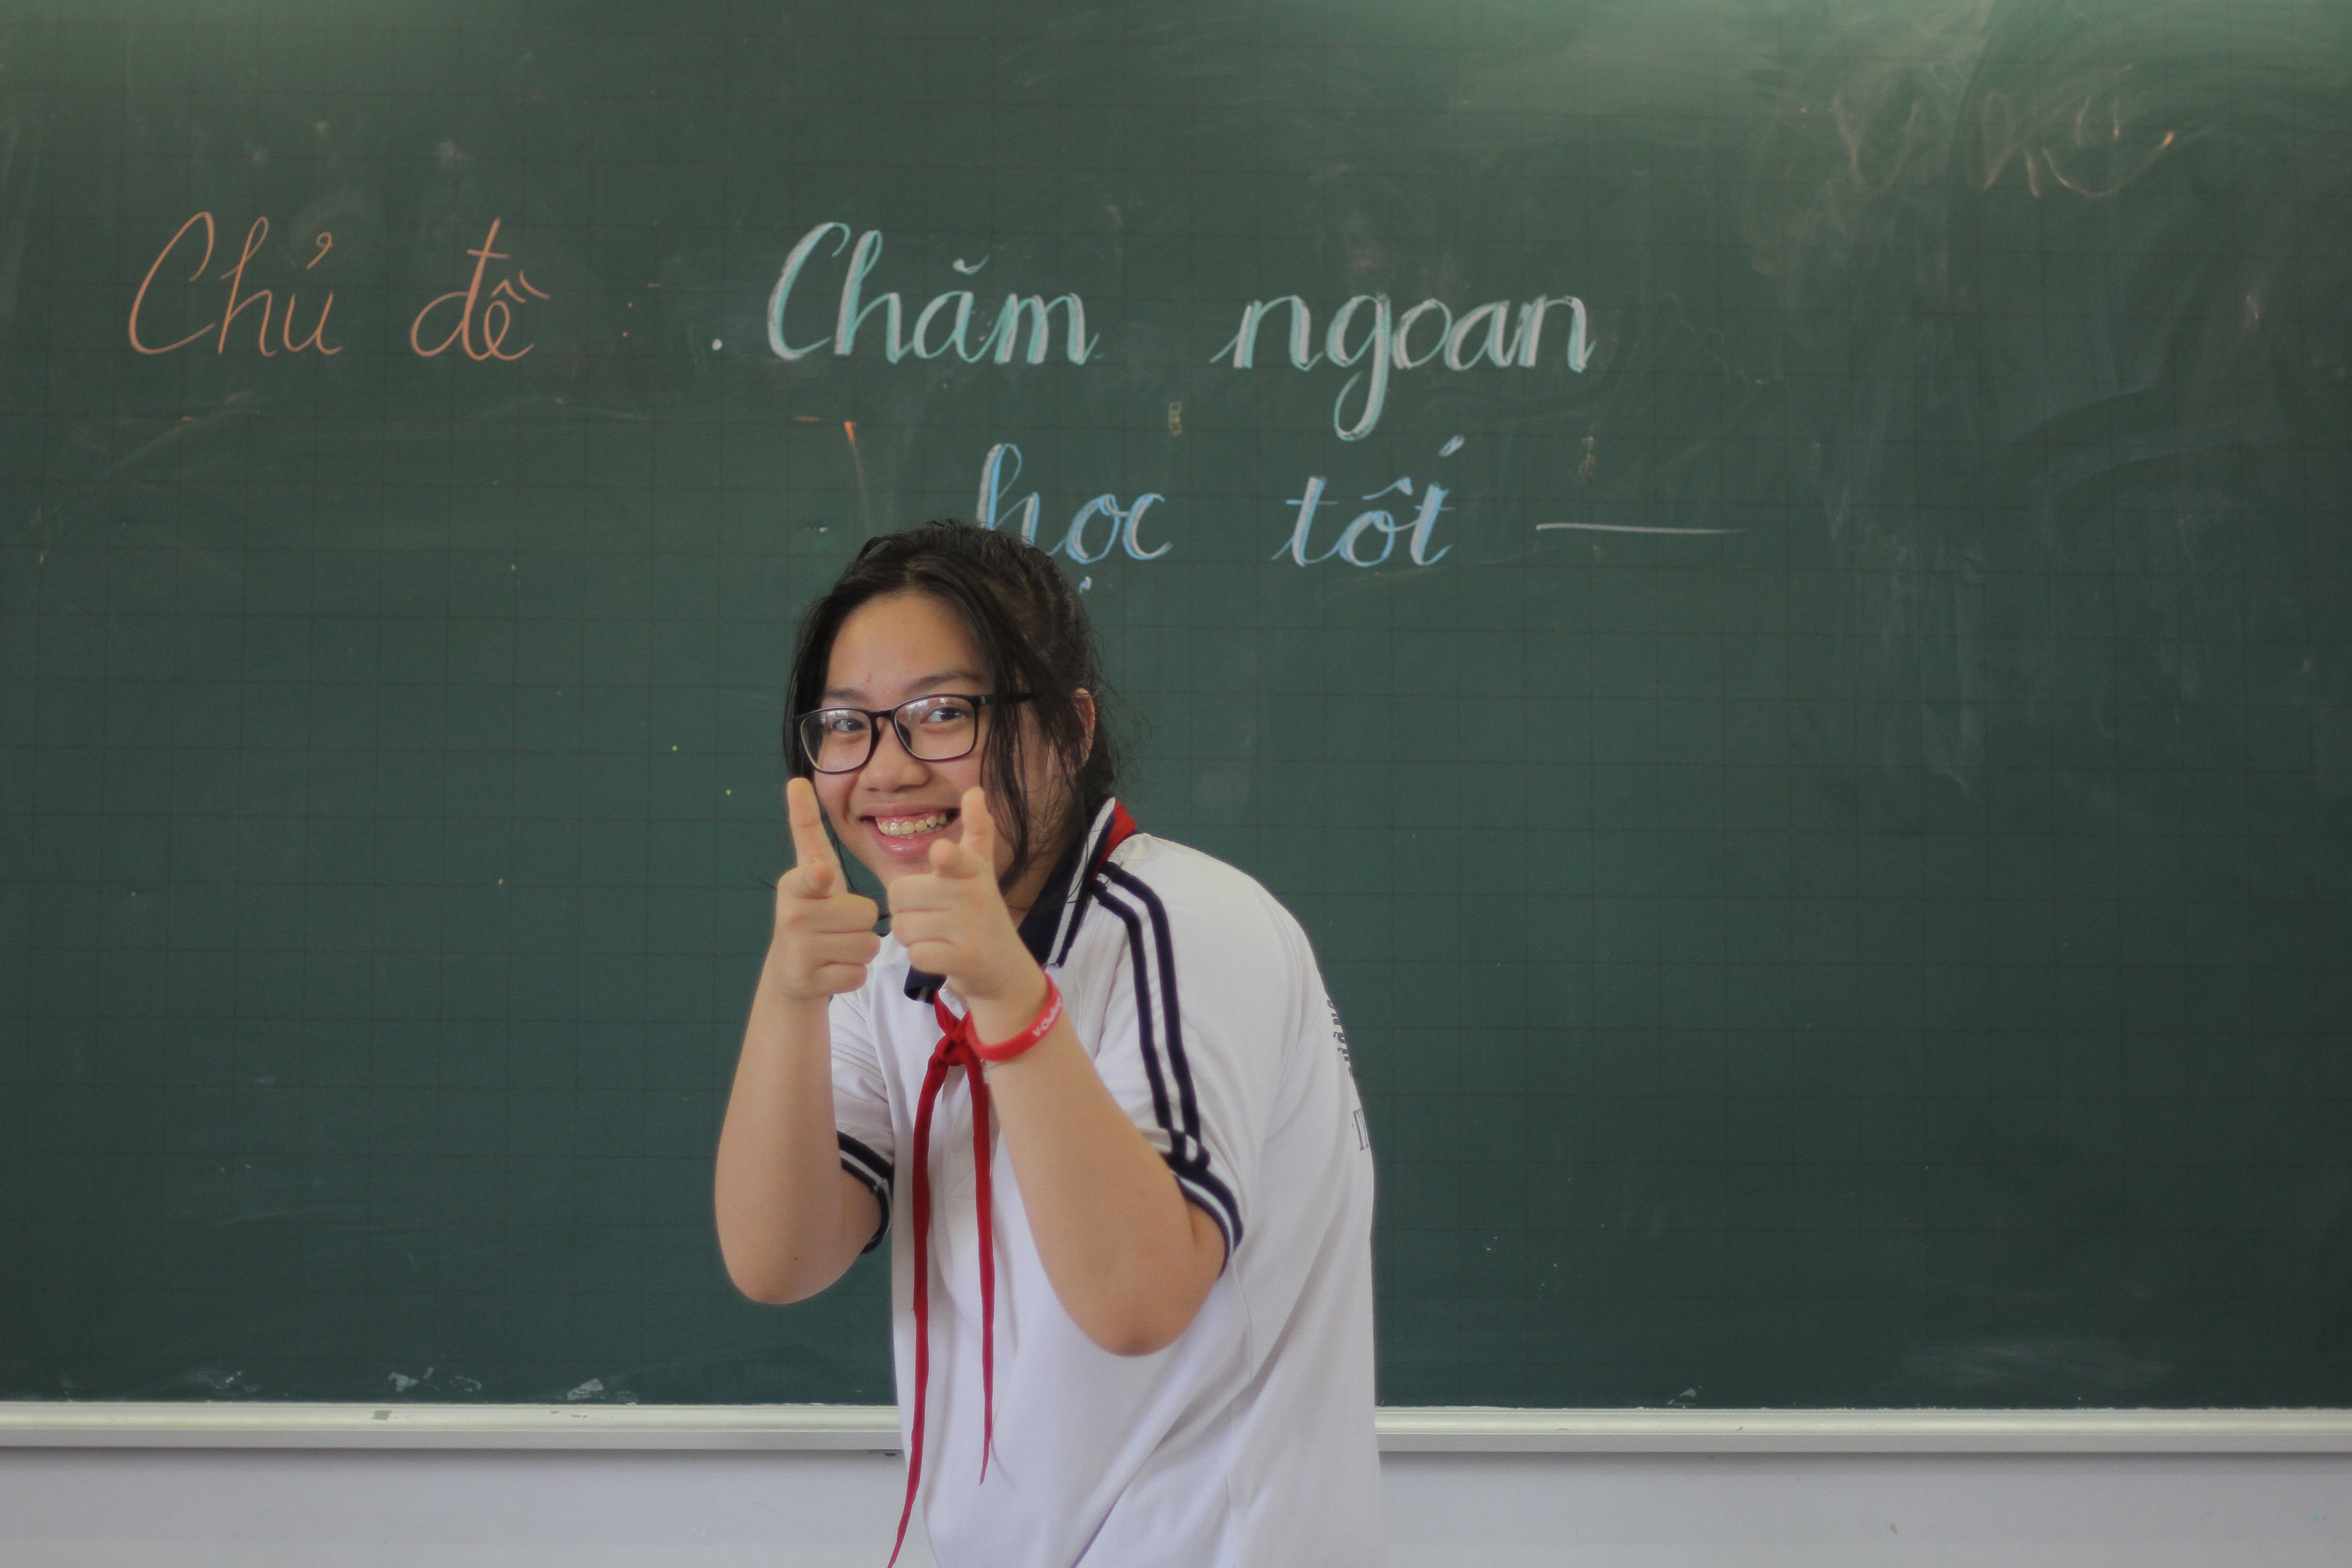 Chủ đề : Chăm ngoan
học tốt